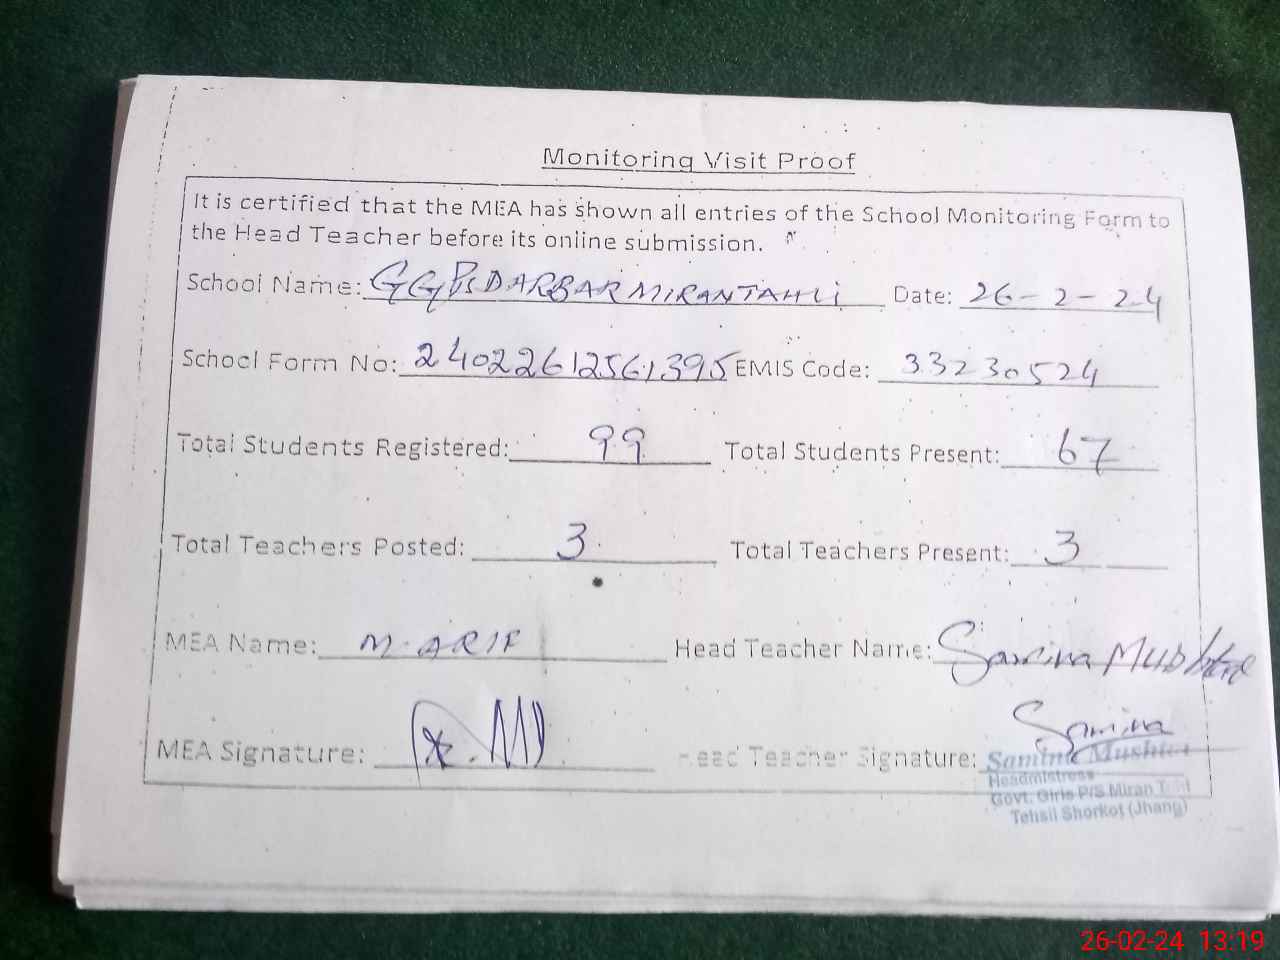 Monitoring Visit Proof
It is certified that the MEA has shown all entries of the School Monitoring Form to
the Head Teacher before its online submission.
School Name: GGPS DARBAR MIRAN TAHLI Date: 26-2-24
School Form No: 24022612561395 EMIS Code: 33230524
Total Students Registered: 99 Total Students Present: 67
Total Teachers Posted: 3 Total Teachers Present: 3
MEA Name: M. ARIF Head Teacher Name: Samina
MEA Signature: Head Teacher Signature: Samina
Headmistress
Govt. Girls P/S Miran
Tehsil Shorkot (Jhang)
26-02-24 13:19